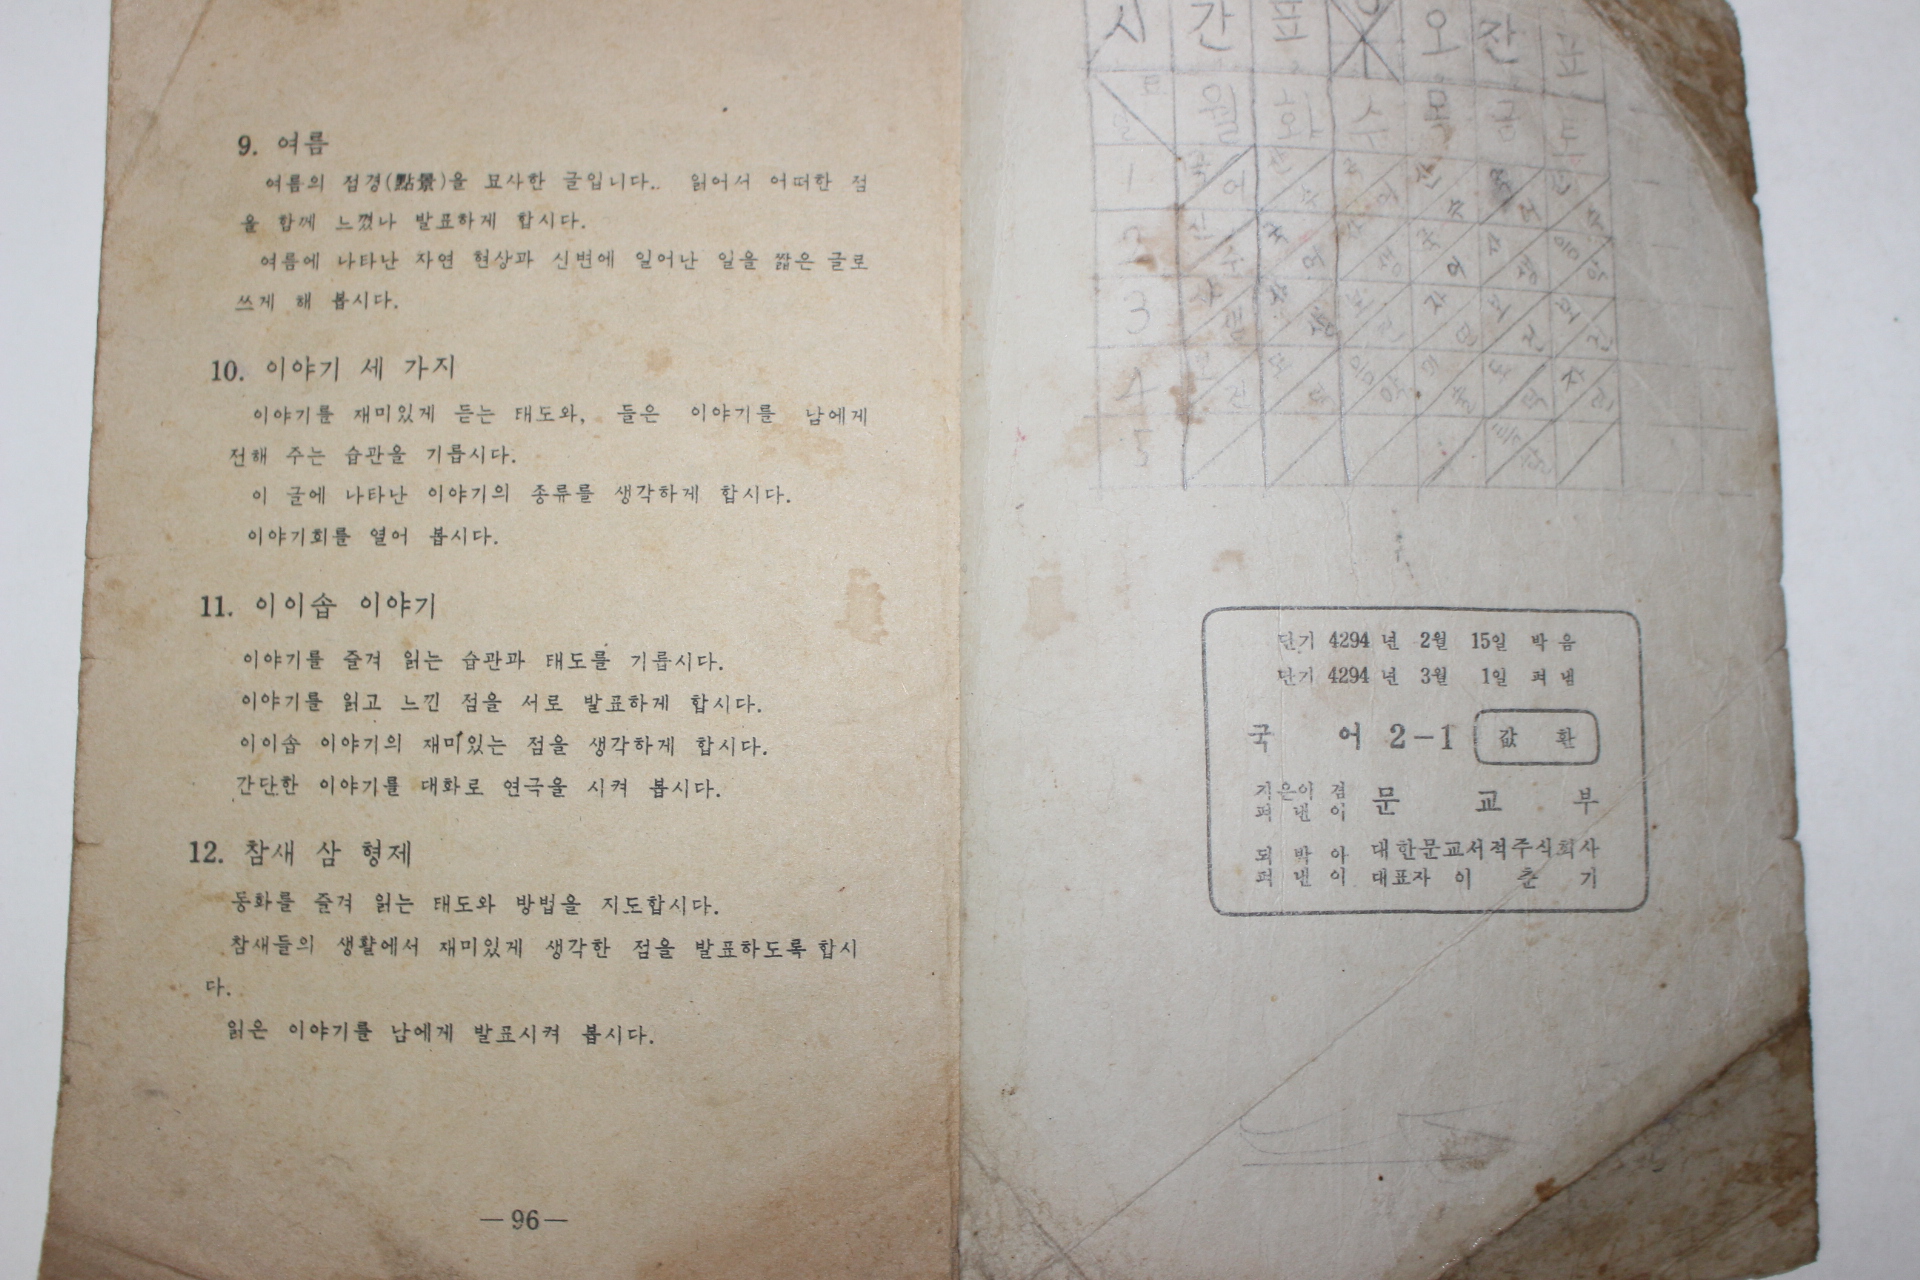 9. 여름
여름의 점경(點景)을 묘사한 글입니다.. 읽어서 어떠한 점
을 함께 느꼈나 발표하게 합시다.
여름에 나타난 자연 현상과 신변에 일어난 일을 짧은 글로
쓰게 해 봅시다.
10. 이야기 세 가지
이야기를 재미있게 듣는 태도와, 들은 이야기를 남에게
전해 주는 습관을 기릅시다.
이 글에 나타난 이야기의 종류를 생각하게 합시다.
이야기회를 열어 봅시다.
11. 이이솝 이야기
이야기를 즐겨 읽는 습관과 태도를 기릅시다.
이야기를 읽고 느낀 점을 서로 발표하게 합시다.
이이솝 이야기의 재미있는 점을 생각하게 합시다.
간단한 이야기를 대화로 연극을 시켜 봅시다.
12. 참새 삼 형제
동화를 즐겨 읽는 태도와 방법을 지도합시다.
참새들의 생활에서 재미있게 생각한 점을 발표하도록 합시
다.
읽은 이야기를 남에게 발표시켜 봅시다.
—96—
시 간 표 오 잔 표
월 화 수 목 금 토
1 국어 산수 국어 산수
2 산수 국어 국어 음악
3
4 음악
5
단기 4294 년 2월 15일 박 음
단기 4294 년 3월 1일 펴 냄
국 어 2-1 값 환
지은이 겸
펴 낸 이 문 교 부
되 박 아 대한문교서적주식회사
펴 낸 이 대표자 이 춘 기